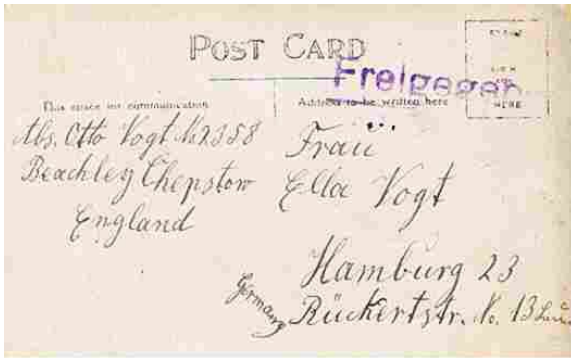 POST CARD
Freigegeben
This space for communication
Address to be written here
HERE
Abs. Otto Vogt No 2358
Beachley Chepstow
England
Frau
Ella Vogt
Hamburg 23
Rückertstr. No. 13
Germany